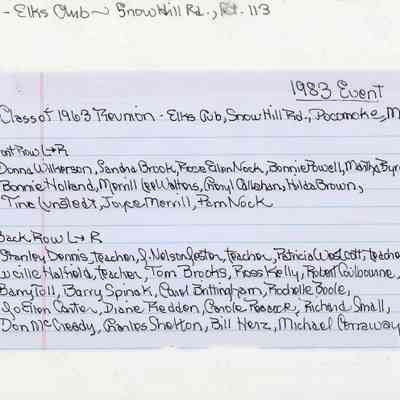 - Elks Club ~ Snow Hill Rd., Rt. 113
1983 Event
Class of 1963 Reunion - Elks Cub, Snow Hill Rd., Pocomoke, M
ont Row L→R
Donna Wilkerson, Sandra Brook, Rose Ellen Nock, Bonnie Powell, Martha Byr
Bonnie Holland, Merrill Lee Walters, Caryl Callahan, Hilda Brown,
Tina Lunstedt, Joyce Merrill, Pam Nock
Back Row L→R
Stanley Dennis, teacher, J. Nelson Jester, teacher, Patricia Wescott, teache
ucille Hatfield, teacher, Tom Brooks, Ross Kelly, Robert Coulbourne,
Barry Tull, Barry Spinak, Carol Brittingham, Rochelle Boole,
Jo Ellen Carter, Diane Redden, Carole Peacock, Richard Small,
Don McCready, Charles Shelton, Bill Herz, Michael Conaway